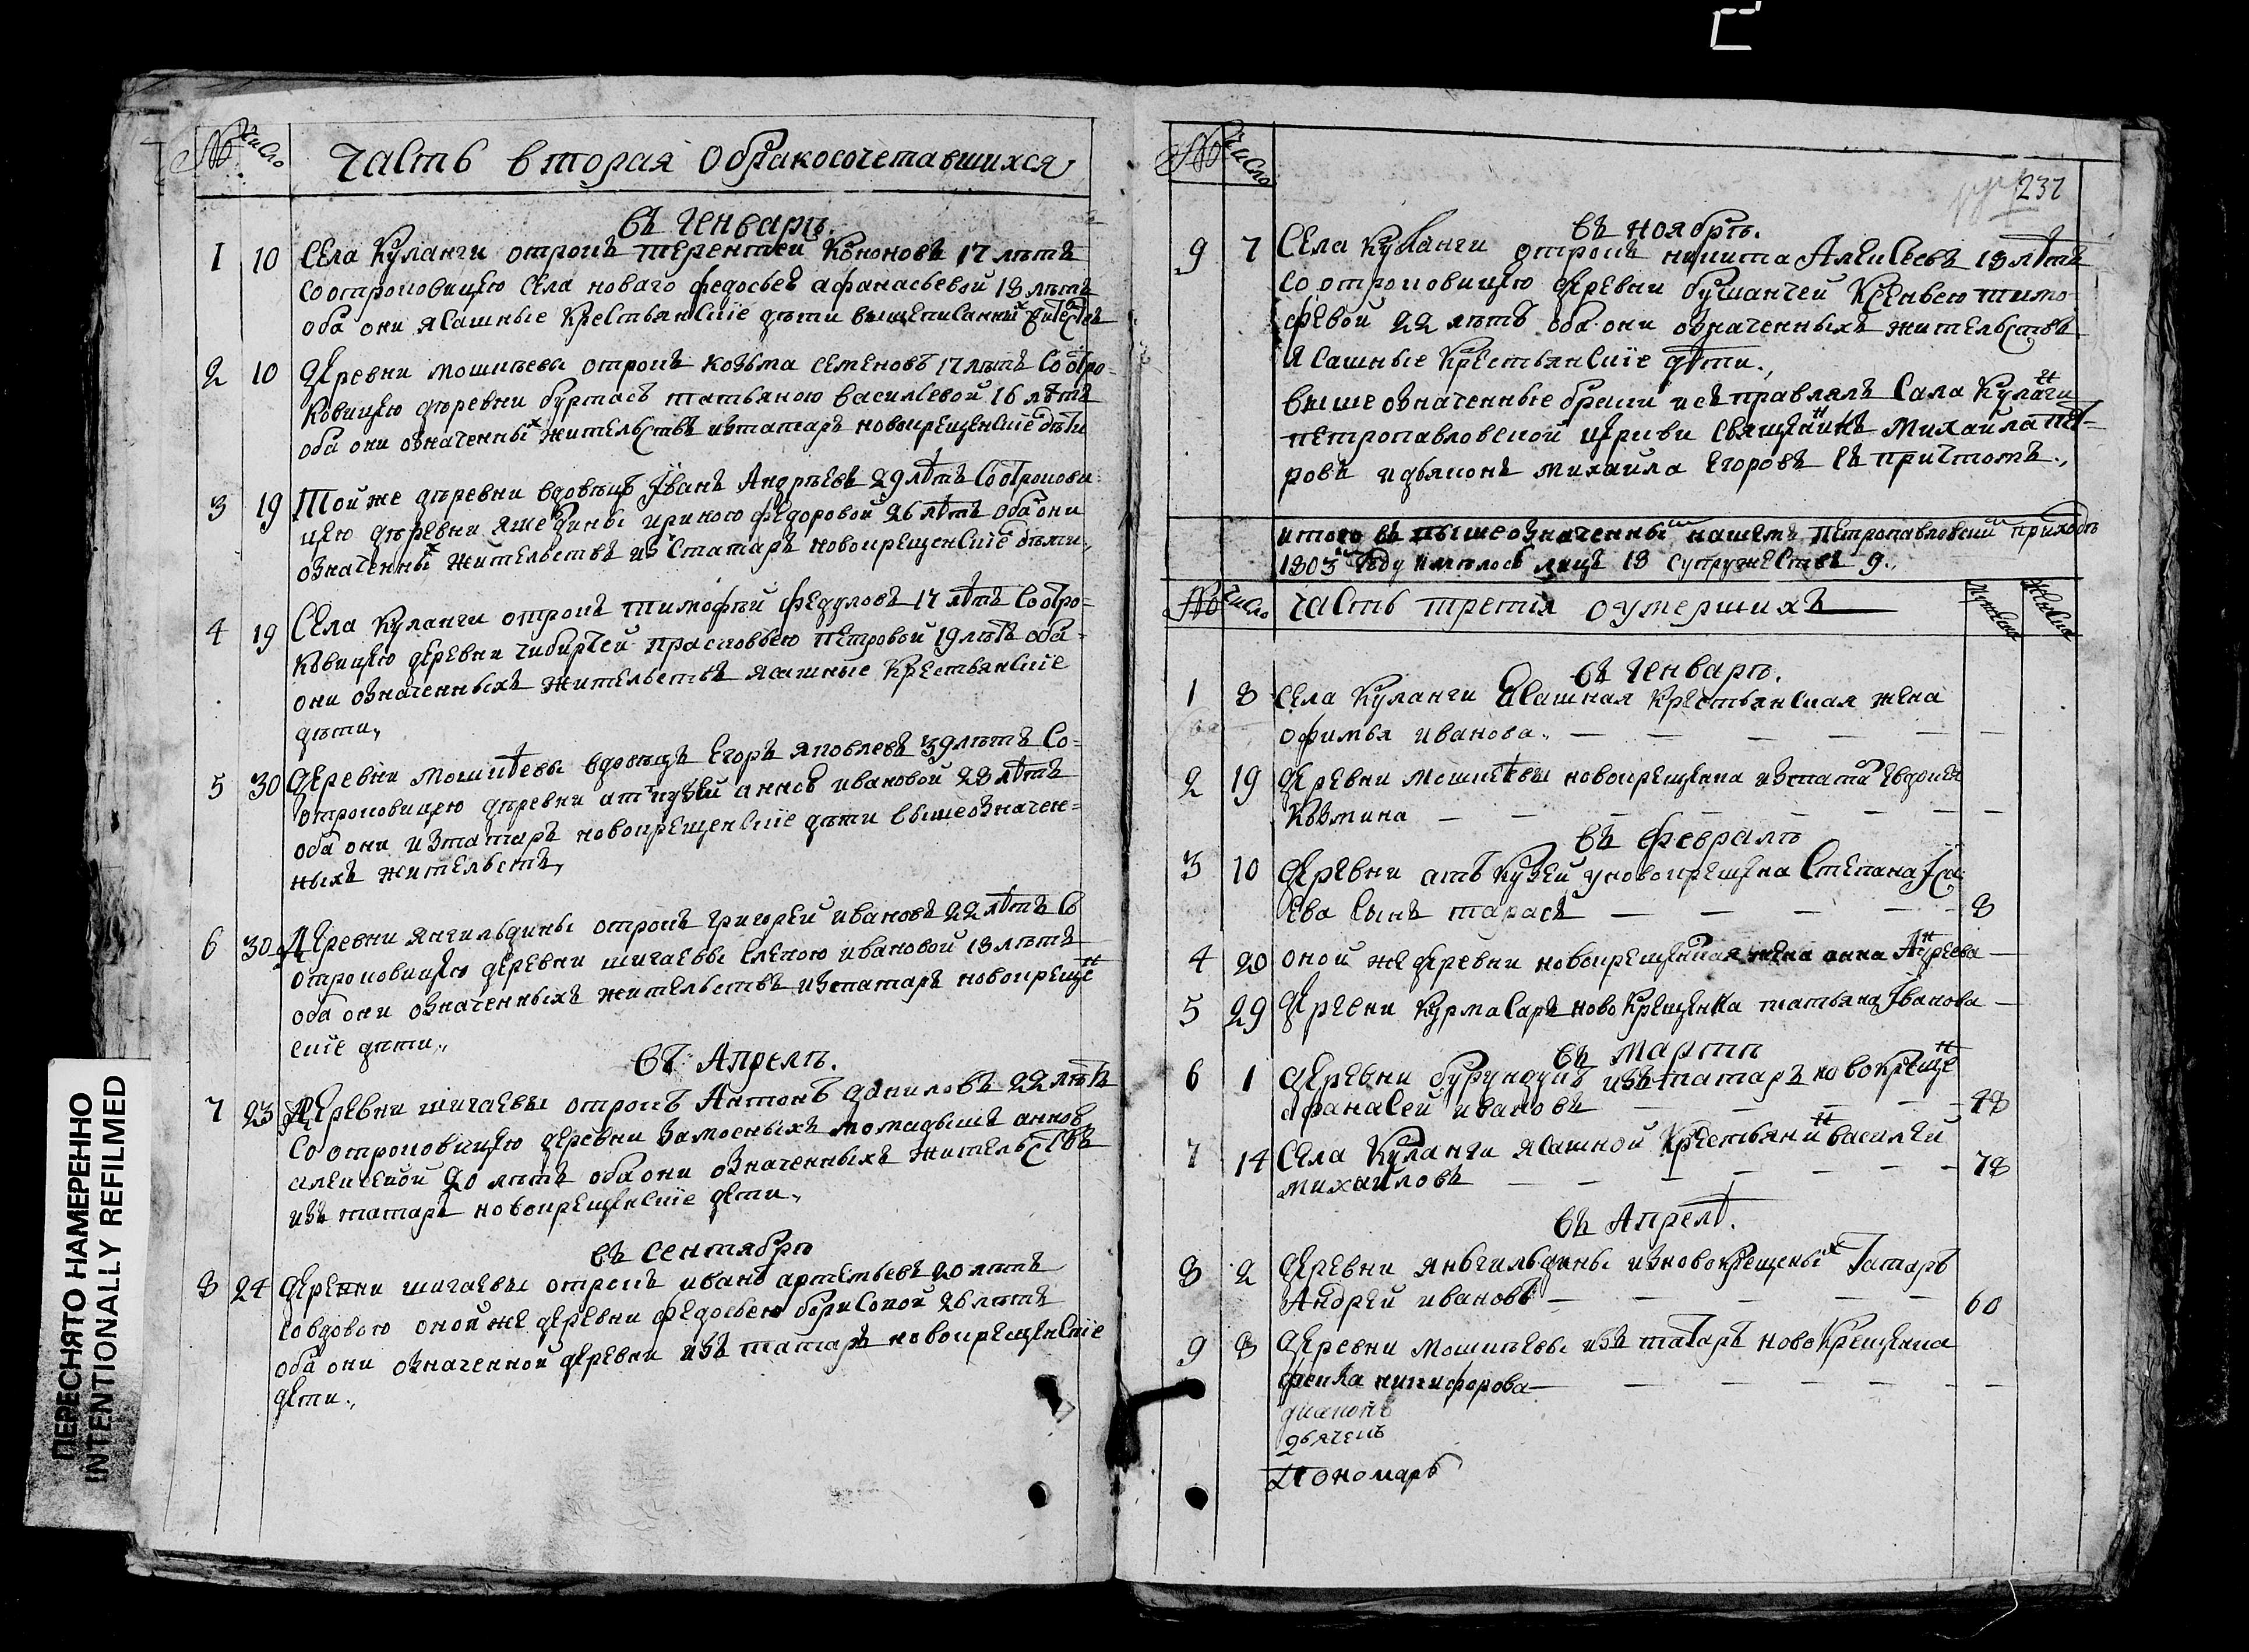 № число
Часть вторая обракосочетавшихся
въ Генварѣ.
1 10 Села Куланги отрокъ терентей Кононовъ 17 лѣтъ
соотроковицею села новаго федосьей афанасьевой 18 лѣтъ
оба они ясашные крестьянскіе дѣти вышеписанны
2 10 Деревни мокшѣевы отрокъ козьма семеновъ 17 лѣтъ соотро-
ковицею деревни буртасъ татьяною васильевой 16 лѣтъ
оба они означенныхъ жительствъ изтатаръ новокрещенскіе дѣти
3 19 Той же деревни вдовецъ Іванъ Андрѣевъ 29 лѣтъ соотрокови-
цею деревни ириною федоровой 26 лѣтъ оба они
означенныхъ жительствъ из татаръ новокрещенскіе дѣти,
4 19 Села Куланги отрокъ тимофѣй федуловъ 17 лѣтъ соотро-
ковицею деревни чибирчей прасковьею петровой 19 лѣтъ оба
они означенныхъ жительствъ ясашные крестьянскіе
дѣти,
5 30 Деревни мокшѣевы вдовецъ Егоръ яковлевъ 39 лѣтъ со-
отроковицею деревни аткузей анною ивановой 23 лѣтъ
оба они изтатаръ новокрещенскіе дѣти вышеозначен-
ныхъ жительствъ,
6 30 Деревни янгильдины отрокъ григорей ивановъ 22 лѣтъ со
отроковицею деревни шигаевы еленою ивановой 18 лѣтъ
оба они означенныхъ жительствъ изтатаръ новокрещен
скіе дѣти.,
въ Апрелѣ.
7 23 Деревни шигаевы отрокъ Антонъ даниловъ 22 лѣтъ
соотроковицею деревни анною
алексеевой 20 лѣтъ оба они означенныхъ жительствъ
изъ татаръ новокрещенскіе дѣти.,
въ сентябрѣ
8 24 Деревни шигаевы отрокъ иванъ артемьевъ 20 лѣтъ
совдовою оной же деревни федосьею борисовой 26 лѣтъ
оба они означенной деревни изъ татаръ новокрещенскіе
дѣти.,
№ число
237
въ ноябрѣ.
9 7 Села Куланги отрокъ никита Алексеевъ 18 лѣтъ
соотроковицею деревни бушанчей Ксеньею тимо-
фѣевой 22 лѣтъ оба они означенныхъ жительствъ
ясашные крестьянскіе дѣти.,
вышеозначенные браки исправлялъ Села Куланги
петропавловской церкви священникъ Михайла пет-
ровъ идьяконъ михаила Егоровъ съ причтомъ.,
итого въ вышеозначенный нашемъ петропавловский приходѣ
1803 году имѣлось лицъ 18 супружествъ 9.,
№ число Часть третія о умершихъ мужеска женска
въ Генварѣ.
1 8 Села Куланги ясашная крестьянская жена
офимья иванова. —
2 19 Деревни мокшѣевы новокрещенка изтатаръ Евдокея
козмина —
въ февралѣ
3 10 Деревни аткузей уновокрещена Степана
ева сынъ тарасъ — 8
4 20 оной же деревни новокрещенная жена анна Андреева —
5 29 Деревни курмасаръ новокрещенка татьяна Іванова —
въ мартѣ
6 1 Деревни бурундукъ изъ татаръ новокрещен
афанасей ивановъ — 48
7 14 Села Куланги ясашной крестьянинъ василей
михайловъ — 78
въ Апрелѣ.
8 2 Деревни яньгильдины изновокрещеныхъ Татаръ
Андрей ивановъ — 60
9 8 Деревни мокшѣевы изъ татаръ новокрещенка
фекла никифорова —
диаконъ
дьячекъ
Пономарь
ПЕРЕСНЯТО НАМЕРЕННО
INTENTIONALLY REFILMED